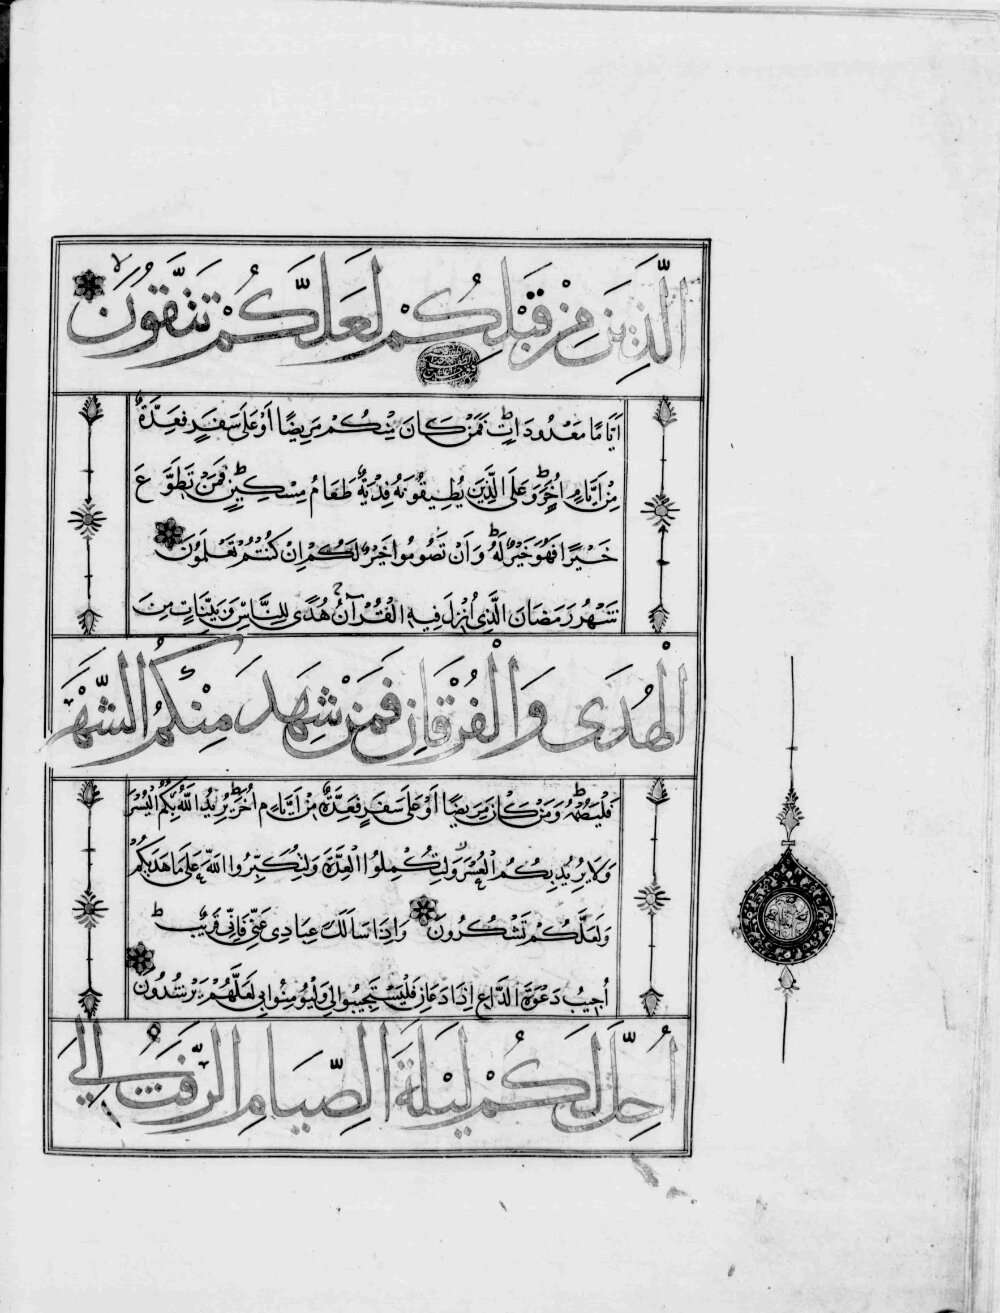 الَّذِينَ مِنْ قَبْلِكُمْ لَعَلَّكُمْ تَتَّقُونَ
اَيَّامًا مَعْدُودَاتٍ فَمَنْ كَانَ مِنْكُمْ مَرِيضًا اَوْ عَلَى سَفَرٍ فَعِدَّةٌ
مِنْ اَيَّامٍ اُخَرَ وَعَلَى الَّذِينَ يُطِيقُونَهُ فِدْيَةٌ طَعَامُ مِسْكِينٍ فَمَنْ تَطَوَّعَ
خَيْرًا فَهُوَ خَيْرٌ لَهُ وَاَنْ تَصُومُوا خَيْرٌ لَكُمْ اِنْ كُنْتُمْ تَعْلَمُونَ
شَهْرُ رَمَضَانَ الَّذِى اُنْزِلَ فِيهِ الْقُرْآنُ هُدًى لِلنَّاسِ وَبَيِّنَاتٍ مِنَ
الْهُدَى وَالْفُرْقَانِ فَمَنْ شَهِدَ مِنْكُمُ الشَّهْرَ
فَلْيَصُمْهُ وَمَنْ كَانَ مَرِيضًا اَوْ عَلَى سَفَرٍ فَعِدَّةٌ مِنْ اَيَّامٍ اُخَرَ يُرِيدُ اللَّهُ بِكُمُ الْيُسْرَ
وَلَا يُرِيدُ بِكُمُ الْعُسْرَ وَلِتُكْمِلُوا الْعِدَّةَ وَلِتُكَبِّرُوا اللَّهَ عَلَى مَا هَدَيكُمْ
وَلَعَلَّكُمْ تَشْكُرُونَ وَاِذَا سَاَلَكَ عِبَادِى عَنِّى فَاِنِّى قَرِيبٌ
اُجِيبُ دَعْوَةَ الدَّاعِ اِذَا دَعَانِ فَلْيَسْتَجِيبُوا لِى وَلْيُؤْمِنُوا بِى لَعَلَّهُمْ يَرْشُدُونَ
اُحِلَّ لَكُمْ لَيْلَةَ الصِّيَامِ الرَّفَثُ اِلَى